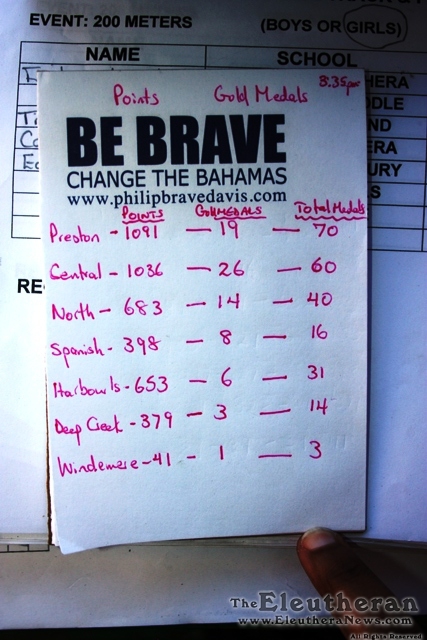 EVENT: 200 METERS
(BOYS or GIRLS)
NAME
SCHOOL
8:35pm
Points Gold Medals
BE BRAVE
CHANGE THE BAHAMAS
www.philipbravedavis.com
POINTS GOLDMEDALS Total Medals
Preston - 1091 — 19 — 70
Central - 1036 — 26 — 60
North - 683 — 14 — 40
Spanish - 398 — 8 — 16
Harbowls - 653 — 6 — 31
Deep Creek - 379 - 3 — 14
Windemere - 41 - 1 — 3
The Eleutheran
www.EleutheraNews.com
All Rights Reserved